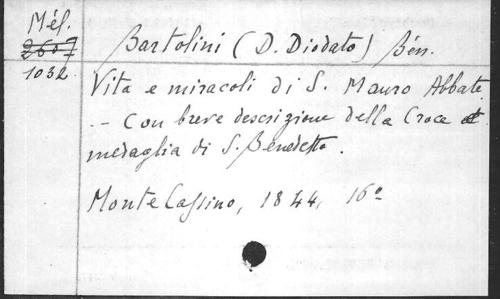 Mél.
2607
1032
Bartolini (D. Diodato) Bén.
Vita e miracoli di S. Mauro Abbate
– Con breve descrizione della Croce et
medaglia di S. Benedetto.
Monte Cassino, 1844, 16º